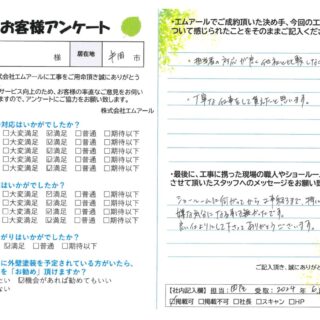 お客様アンケート
様 居在地 半田 市
株式会社エムアールに工事をご用命頂き誠にありがとう
サービス向上のため、お客様の率直なご意見をお伺い
ますので、アンケートにご協力をお願い致します。
株式会社エムアール
対応はいかがでしたか?
□大変満足 ☑満足 □普通 □期待以下
□大変満足 ☑満足 □普通 □期待以下
□大変満足 ☑満足 □普通 □期待以下
はいかがでしたか?
□大変満足 ☑満足 □普通 □期待以下
はいかがでしたか?
足 ☑満足 □普通 □期待以下
がりはいかがでしたか?
足 ☑満足 □普通 □期待以下
に外壁塗装を予定されている方がいたら、
を「お勧め」頂けますか?
たい ☑機会があれば勧めてもいい
ない
・エムアールでご成約頂いた決め手、今回の工
ついて感じられたことをそのままご記入くださ
・担当者の対応が良く他社と比較した
・丁寧な仕事をして貰えたと思います。
・最後に、工事に携った現場の職人やショールー
させて頂いたスタッフへのメッセージをお願い
ショールームに
ありがとうございます。
ご記入頂き、誠にありがと
【社内記入欄】担当: 受取: 2024 年 6
☑掲載可 □掲載不可 □社長 □スキャン □HP